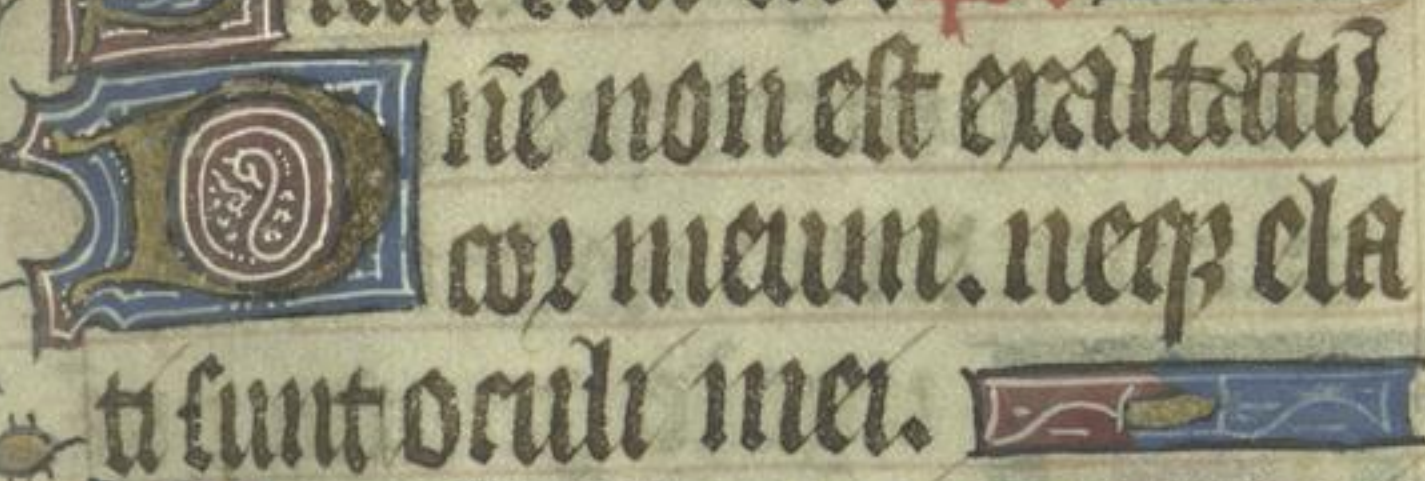 Dn̄e non est exaltatū
cor meum. neqꝫ ela
ti sunt oculi mei.